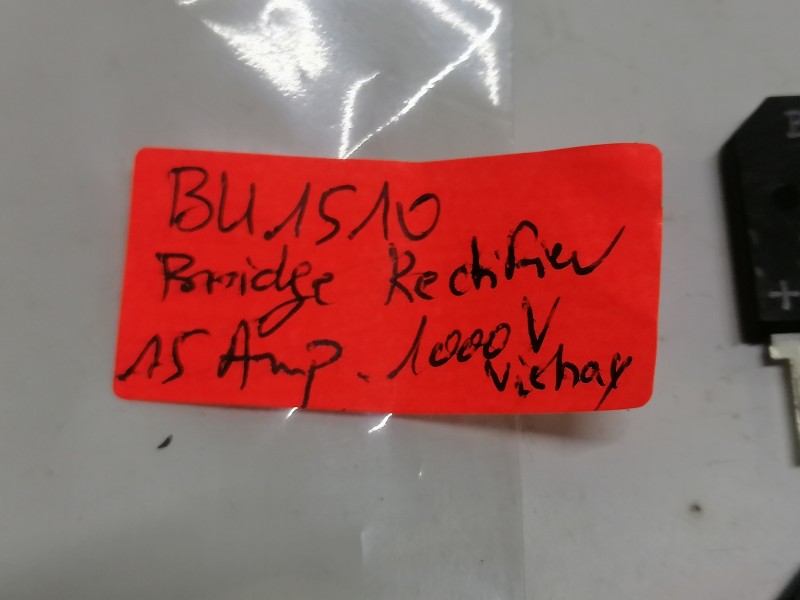 BU1510
Bridge Rectifier
15 Amp. 1000V
Vishay
+